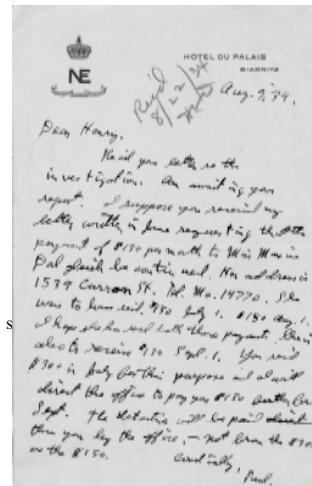 NE
HOTEL DU PALAIS
BIARRITZ
Rec'd
8/22/34
Aug. 9, '34.
Dear Henry,
Rec'd your letter re the
investigation. Am awaiting your
report. I suppose you received my
letter written in June requesting that the
payment of $150 per month to Miss
be continued. Her address is
1539 St. Tel. Mo. 14770. She
was to have rec'd $150 July 1. $150 Aug. 1.
I hope she has rec'd both those payments. She is
also to receive $150 Sept. 1. You rec'd
$300 in July for this purpose and I will
direct the office to pay you $150 for
Sept. The detective will be paid
thru you by the office, — not from the $300
or the $150.
Cordially,
Paul.
s